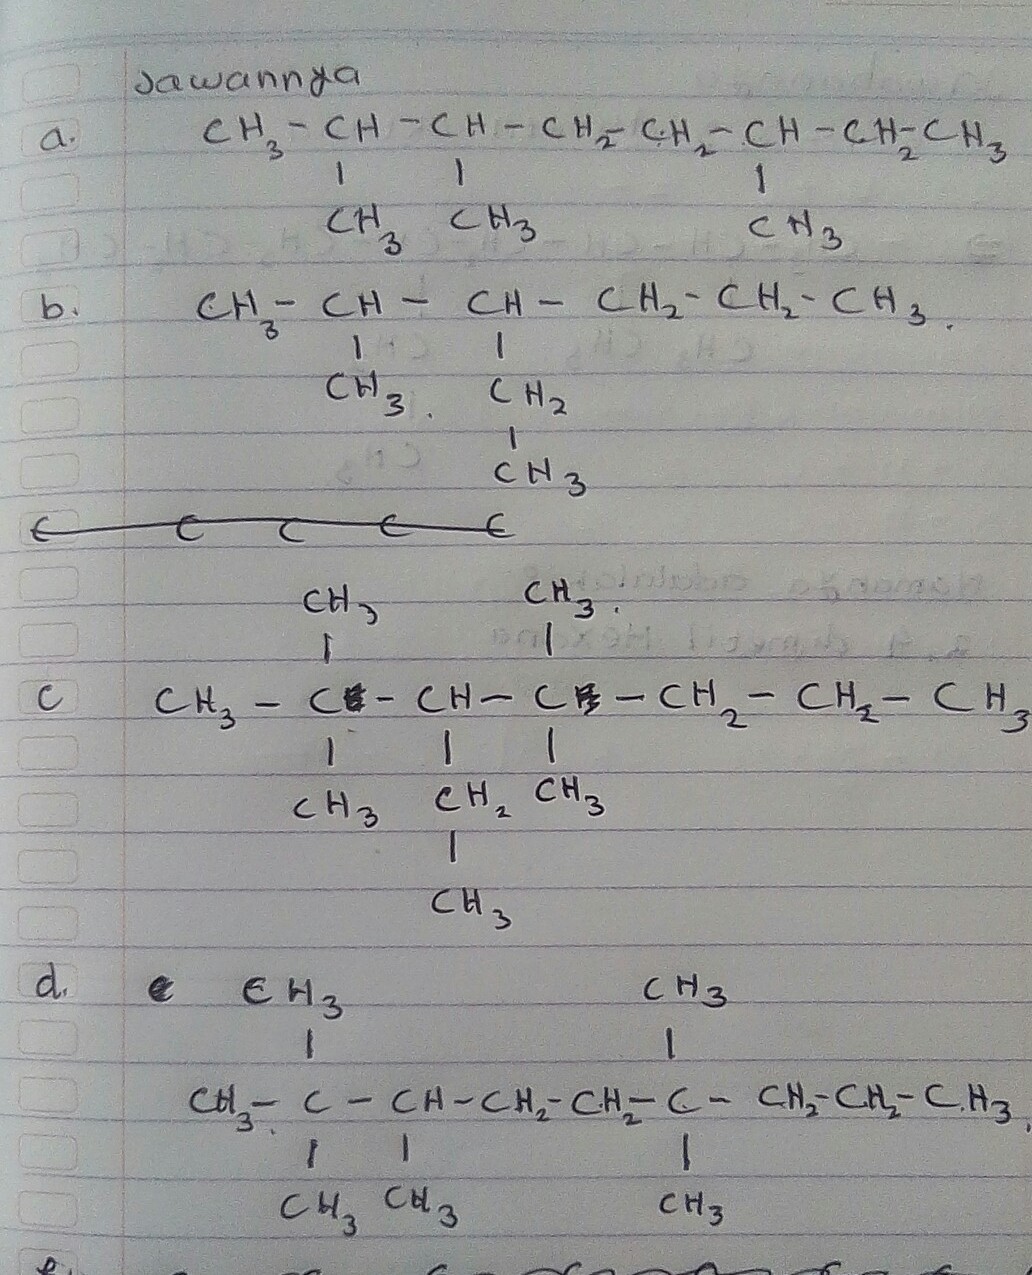 Jawannya
a. CH3 - CH - CH - CH2 - CH2 - CH - CH2 - CH3
| | |
CH3 CH3 CH3
b. CH3 - CH - CH - CH2 - CH2 - CH3.
| |
CH3. CH2
|
CH3
C C C C C
CH3 CH3.
| |
c CH3 - C - CH - C - CH2 - CH2 - CH3
| | |
CH3 CH2 CH3
|
CH3
d. CH3 CH3
| |
CH3 - C - CH - CH2 - CH2 - C - CH2 - CH2 - CH3.
| | |
CH3 CH3 CH3